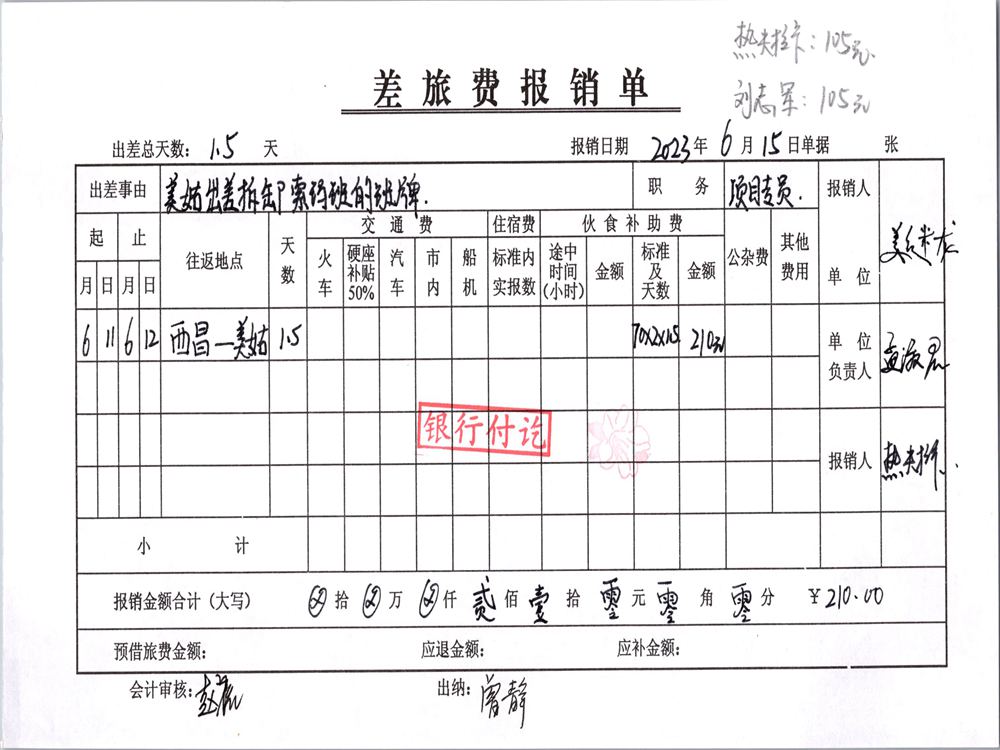 热夫拉卡：105元
刘志军：105元
差旅费报销单
出差总天数：1.5 天 报销日期 2023年 6月 15日单据 张
出差事由 美姑出差拆卸索玛班的班牌. 职务 项目专员. 报销人
起 止 往返地点 天数 交通费 住宿费 伙食补助费 公杂费 其他费用 单位
月 日 月 日 火车 硬座补贴50% 汽车 市内 船机 标准内实报数 途中时间(小时) 金额 标准及天数 金额
6 11 6 12 西昌—美姑 1.5 70×2×1.5 210元 单位负责人
银行付讫
报销人 热夫拉卡.
小计
报销金额合计（大写） 拾 万 仟 贰佰 壹拾 零元 零角 零分 ￥210.00
预借旅费金额： 应退金额： 应补金额：
会计审核： 出纳：曾静